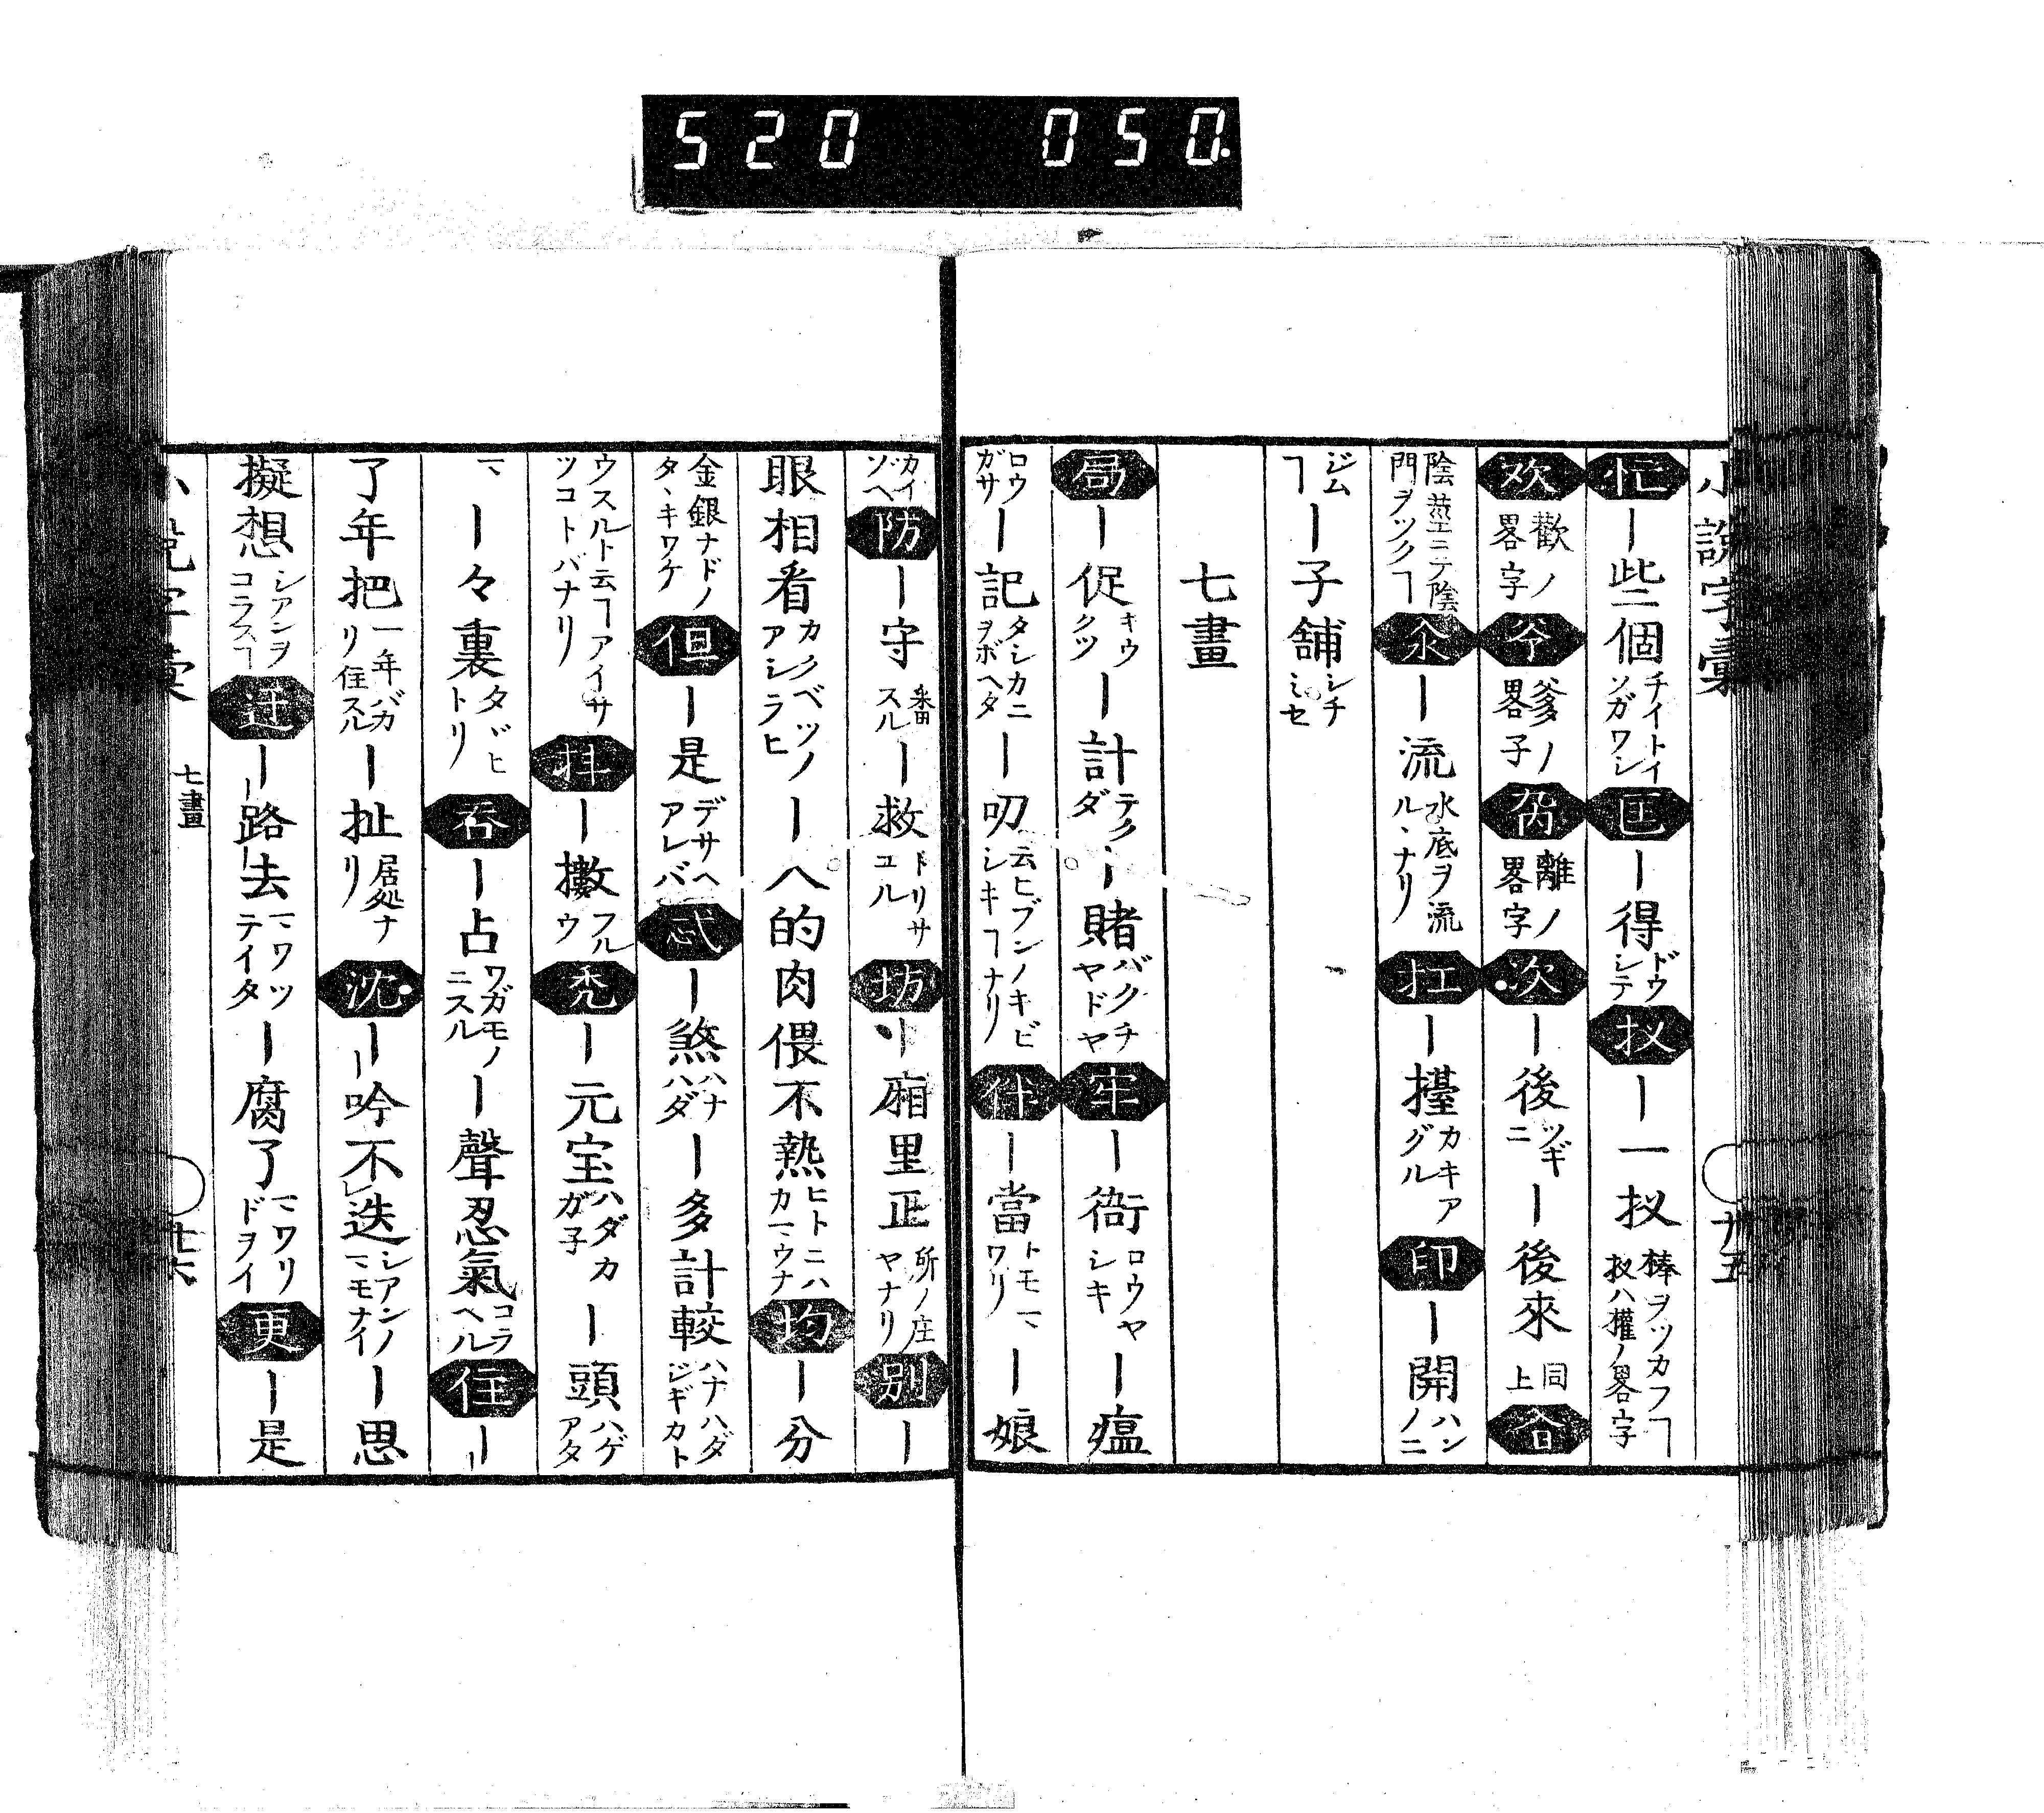 520 050.
小說字彙
忙｜些個チイトイソガワシ 匡｜得ドウシテ 扠｜一扠棒ヲツカフヿ扠ハ權ノ畧字
欢歡ノ畧字 爷爹ノ畧子 离離ノ畧字 次｜後ツギニ｜後來同上
陰莖ニテ陰門ヲツクヿ 汆｜流水底ヲ流ルヽナリ 扛｜擡カキアグル 印｜開ハンノニ
ジムヿ｜子舖シチミセ
七畫
局｜促キウクツ｜計テクダ｜賭バクチヤドヤ 牢｜衙ロウヤシキ｜瘟
ロウガサ｜記タシカニヲボヘタ｜叨云ヒブンノキビシキヿナリ 伴｜當トモマワリ｜娘
廿五
カイゾヘ 防｜守番スル｜救トリサユル 坊｜廂里正所ノ庄ヤナリ 別｜
眼相看カクベツノアシラヒ｜人的肉偎不熱ヒトニハカマウナ 均｜分
金銀ナドノタヽキワケ 但｜是デサヘアレバ 忒｜煞ハナハダ｜多計較ハナハダジギカト
ウスルト云ヿアイサツコトバナリ 抖｜擻フルウ 禿｜元宝ハダカガ子｜頭ハゲアタ
マ｜々裏タビヒトリ 吞｜占ワガモノニスル｜聲忍氣コラヘル 住｜
了年把一年バカリ住スル｜扯居処ナリ 沈｜吟不迭シアンノマモナイ｜思
擬想シアンヲコラスヿ 迂｜路去マワツテイタ｜腐了マワリドヲイ 更｜是
小說字彙 七畫 廿六